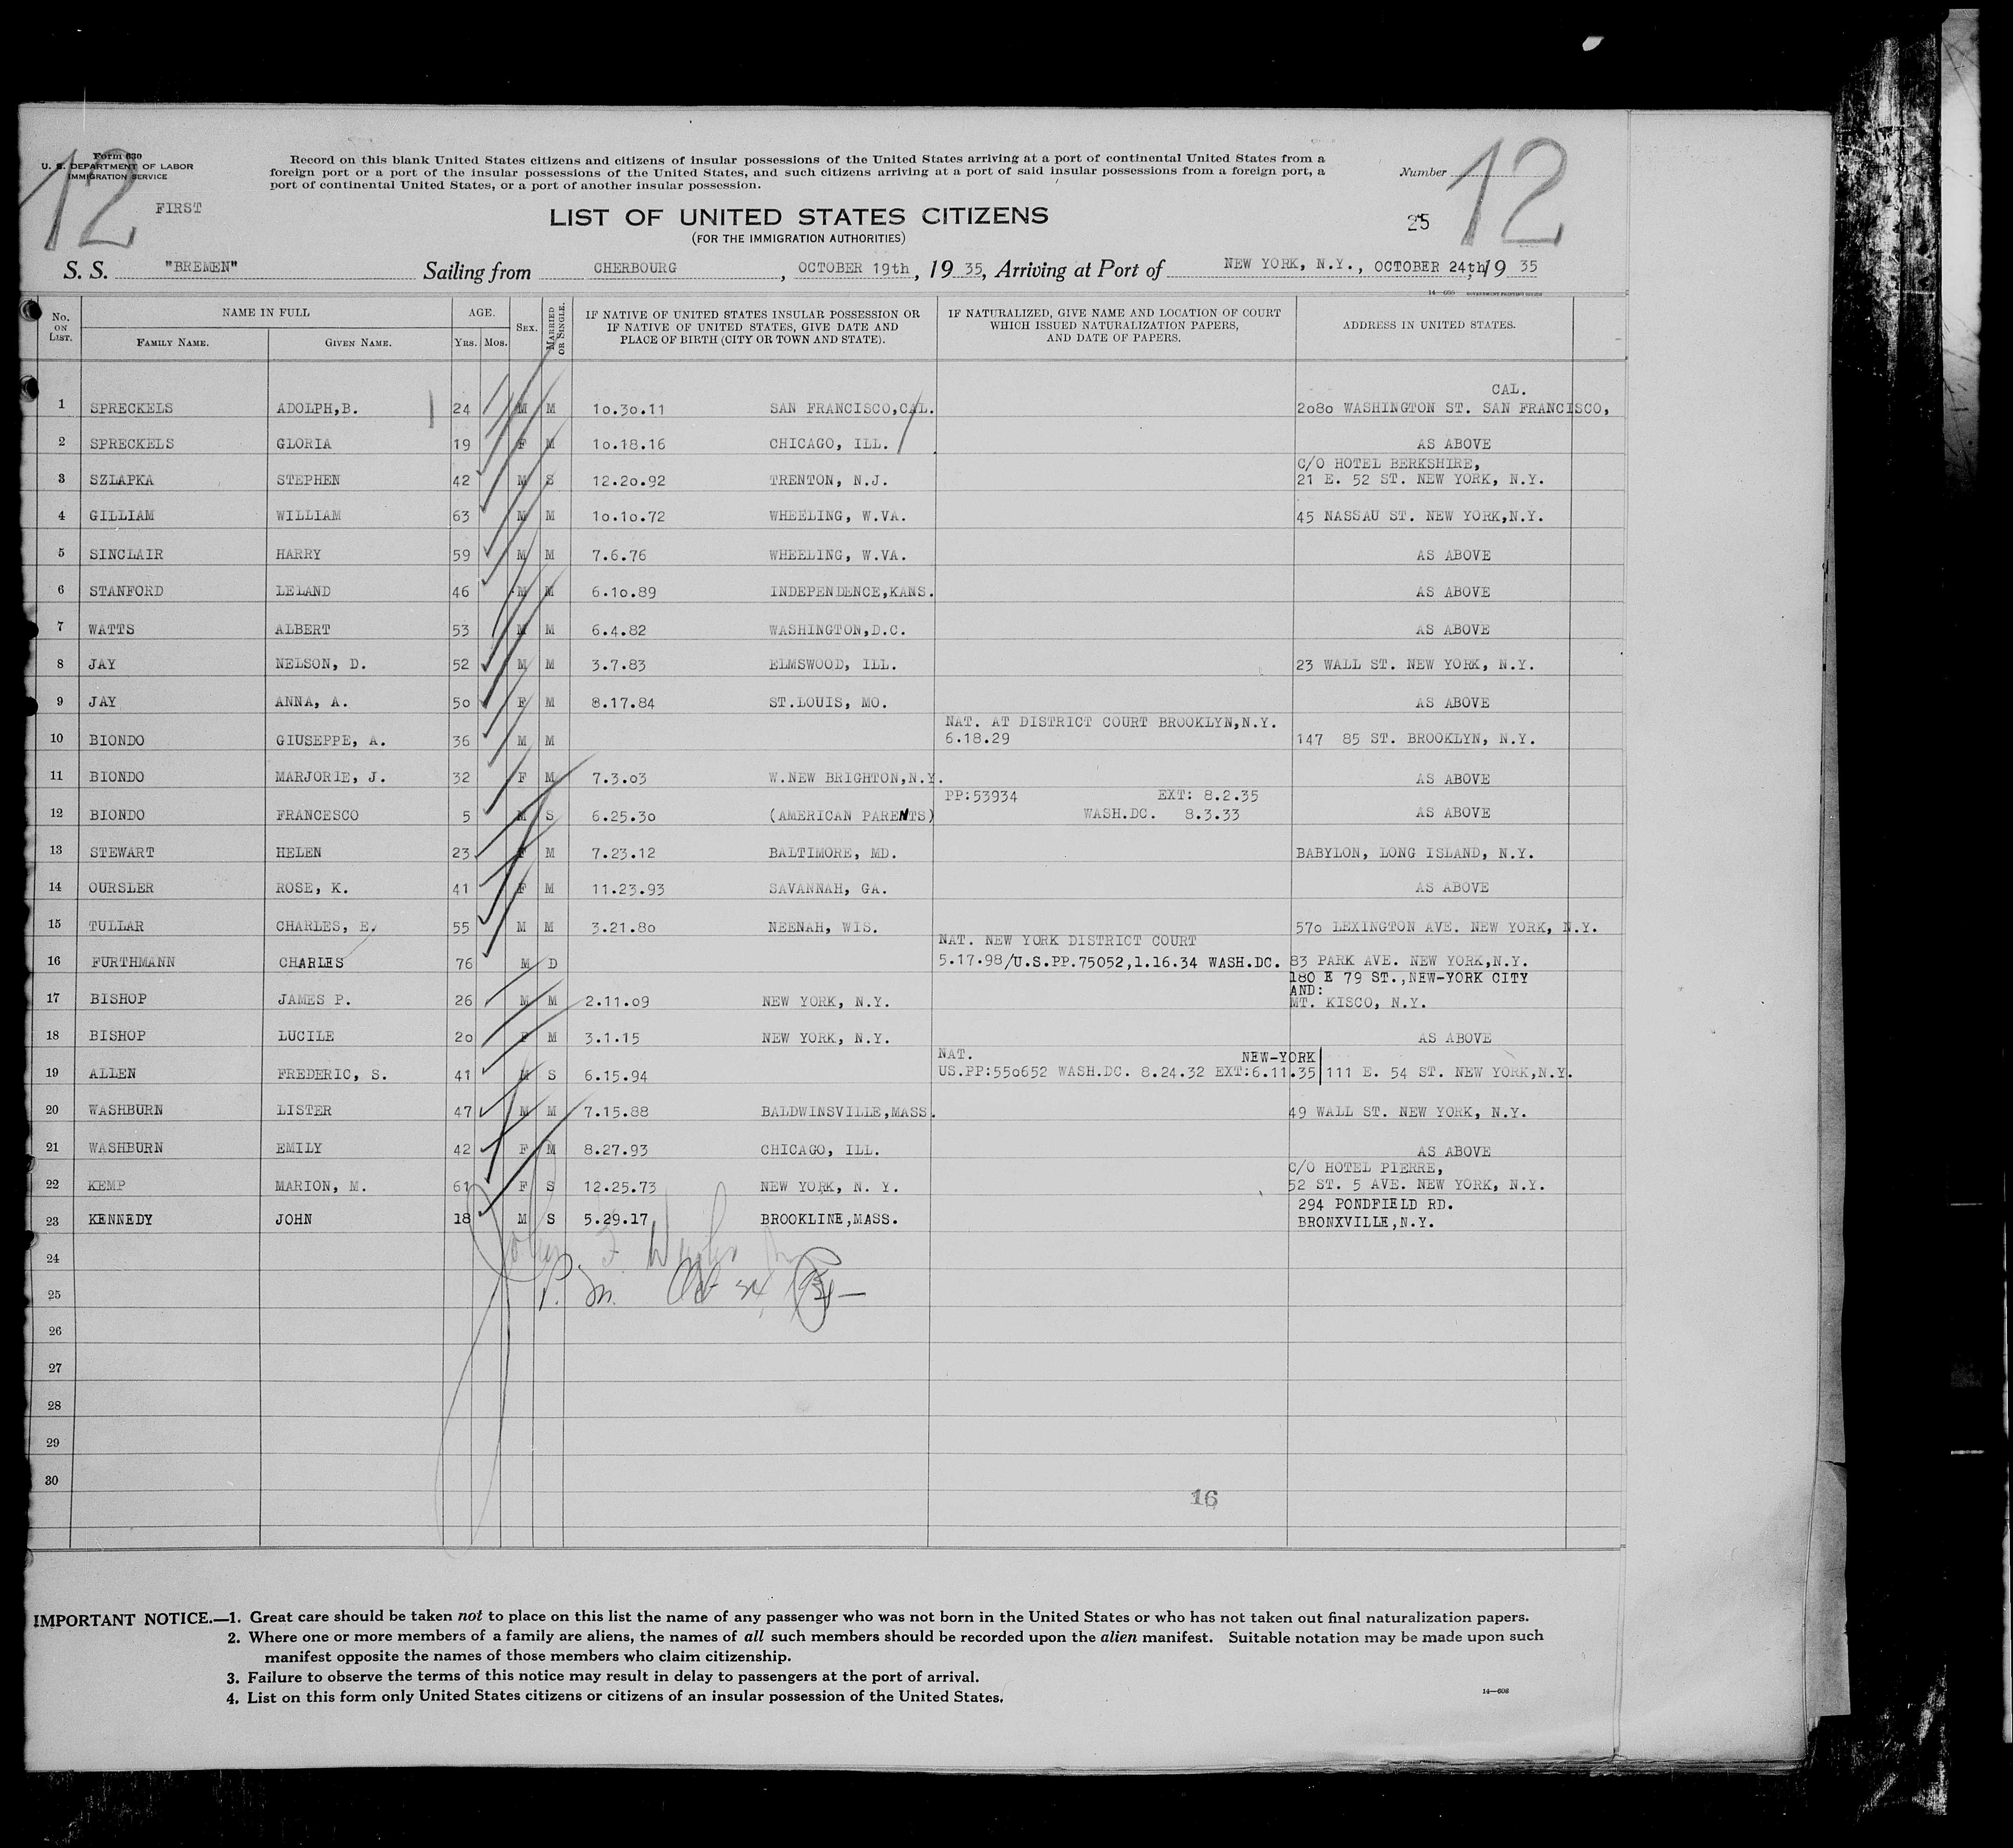 12
Form 630
U. S. DEPARTMENT OF LABOR
IMMIGRATION SERVICE
FIRST
Record on this blank United States citizens and citizens of insular possessions of the United States arriving at a port of continental United States from a
foreign port or a port of the insular possessions of the United States, and such citizens arriving at a port of said insular possessions from a foreign port, a
port of continental United States, or a port of another insular possession.
Number
12
LIST OF UNITED STATES CITIZENS
25
(FOR THE IMMIGRATION AUTHORITIES)
S. S. "BREMEN" Sailing from CHERBOURG, OCTOBER 19th, 19 35, Arriving at Port of NEW YORK, N.Y., OCTOBER 24th, 19 35
No. ON LIST. NAME IN FULL FAMILY NAME. GIVEN NAME. AGE. YRS. MOS. SEX. MARRIED OR SINGLE. IF NATIVE OF UNITED STATES INSULAR POSSESSION OR IF NATIVE OF UNITED STATES, GIVE DATE AND PLACE OF BIRTH (CITY OR TOWN AND STATE). IF NATURALIZED, GIVE NAME AND LOCATION OF COURT WHICH ISSUED NATURALIZATION PAPERS, AND DATE OF PAPERS. ADDRESS IN UNITED STATES.
CAL.
1 SPRECKELS ADOLPH,B. 24 M M 10.30.11 SAN FRANCISCO,CAL. 2080 WASHINGTON ST. SAN FRANCISCO,
2 SPRECKELS GLORIA 19 F M 10.18.16 CHICAGO, ILL. AS ABOVE
C/O HOTEL BERKSHIRE,
3 SZLAPKA STEPHEN 42 M S 12.20.92 TRENTON, N.J. 21 E. 52 ST. NEW YORK, N.Y.
4 GILLIAM WILLIAM 63 M M 10.10.72 WHEELING, W.VA. 45 NASSAU ST. NEW YORK,N.Y.
5 SINCLAIR HARRY 59 M M 7.6.76 WHEELING, W.VA. AS ABOVE
6 STANFORD LELAND 46 M M 6.10.89 INDEPENDENCE,KANS. AS ABOVE
7 WATTS ALBERT 53 M M 6.4.82 WASHINGTON,D.C. AS ABOVE
8 JAY NELSON, D. 52 M M 3.7.83 ELMSWOOD, ILL. 23 WALL ST. NEW YORK, N.Y.
9 JAY ANNA, A. 50 F M 8.17.84 ST.LOUIS, MO. AS ABOVE
NAT. AT DISTRICT COURT BROOKLYN,N.Y.
10 BIONDO GIUSEPPE, A. 36 M M 6.18.29 147 85 ST. BROOKLYN, N.Y.
11 BIONDO MARJORIE, J. 32 F M 7.3.03 W.NEW BRIGHTON,N.Y. AS ABOVE
PP:53934 EXT: 8.2.35
12 BIONDO FRANCESCO 5 M S 6.25.30 (AMERICAN PARENTS) WASH.DC. 8.3.33 AS ABOVE
13 STEWART HELEN 23 F M 7.23.12 BALTIMORE, MD. BABYLON, LONG ISLAND, N.Y.
14 OURSLER ROSE, K. 41 F M 11.23.93 SAVANNAH, GA. AS ABOVE
15 TULLAR CHARLES, E. 55 M M 3.21.80 NEENAH, WIS. 570 LEXINGTON AVE. NEW YORK, N.Y.
NAT. NEW YORK DISTRICT COURT
16 FURTHMANN CHARLES 76 M D 5.17.98/U.S.PP.75052,1.16.34 WASH.DC. 83 PARK AVE. NEW YORK,N.Y.
180 E 79 ST.,NEW-YORK CITY
AND:
17 BISHOP JAMES P. 26 M M 2.11.09 NEW YORK, N.Y. MT. KISCO, N.Y.
18 BISHOP LUCILE 20 F M 3.1.15 NEW YORK, N.Y. AS ABOVE
NAT. NEW-YORK
19 ALLEN FREDERIC, S. 41 M S 6.15.94 US.PP:550652 WASH.DC. 8.24.32 EXT:6.11.35 111 E. 54 ST. NEW YORK,N.Y.
20 WASHBURN LISTER 47 M M 7.15.88 BALDWINSVILLE,MASS. 49 WALL ST. NEW YORK, N.Y.
21 WASHBURN EMILY 42 F M 8.27.93 CHICAGO, ILL. AS ABOVE
C/O HOTEL PIERRE,
22 KEMP MARION, M. 61 F S 12.25.73 NEW YORK, N. Y. 52 ST. 5 AVE. NEW YORK, N.Y.
294 PONDFIELD RD.
23 KENNEDY JOHN 18 M S 5.29.17 BROOKLINE,MASS. BRONXVILLE,N.Y.
24
25
26
27
28
29
30
16
IMPORTANT NOTICE.—1. Great care should be taken not to place on this list the name of any passenger who was not born in the United States or who has not taken out final naturalization papers.
2. Where one or more members of a family are aliens, the names of all such members should be recorded upon the alien manifest. Suitable notation may be made upon such
manifest opposite the names of those members who claim citizenship.
3. Failure to observe the terms of this notice may result in delay to passengers at the port of arrival.
4. List on this form only United States citizens or citizens of an insular possession of the United States.
14—608